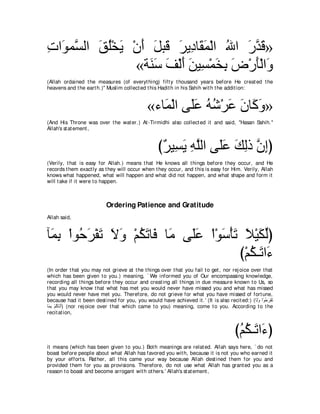 «قَدَّرَ اللهُ الْمَقَادِيرَ قَبْلَ أَنْ يَخْلُقَ السَّموَاتِ
وَالْأَرْضَ بِخَمْسِينَ أَلْفَ سَنَةٍ»
(Allah ordained the measures (of everything) fifty thousand years before He created the
heavens and the earth.)" Muslim collected this Hadith in his Sahih with the addition:
«وَكَانَ عَرْشُهُ عَلَى الْمَاءِ»
(And His Throne was over the water.) At-Tirmidhi also collected it and said, "Hasan Sahih."
Allah's statement,
(إِنَّ ذَلِكَ عَلَى اللَّهِ يَسِيرٌ)
(Verily, that is easy for Allah.) means that He knows all things before they occur, and He
records them exactly as they will occur when they occur, and this is easy for Him. Verily, Allah
knows what happened, what will happen and what did not happen, and what shape and form it
will take if it were to happen.
Ordering Patience and Gratitude
Allah said,
(لِّكَيْلاَ تَأْسَوْاْ عَلَى مَا فَاتَكُمْ وَلاَ تَفْرَحُواْ بِمَآ
ءَاتَـكُمْ)
(In order that you may not grieve at the things over that you fail to get, nor rejoice over that
which has been given to you.) meaning, `We informed you of Our encompassing knowledge,
recording all things before they occur and creating all things in due measure known to Us, so
that you may know that what has met you would never have missed you and what has missed
you would never have met you. Therefore, do not grieve for what you have missed of fortune,
because had it been destined for you, you would have achieved it.' (It is also recited:)
(nor rejoice over that which came to you) meaning, come to you. According to the
recitation,
(ءَاتَـكُمْ)
it means (which has been given to you.) Both meanings are related. Allah says here, `do not
boast before people about what Allah has favored you with, because it is not you who earned it
by your efforts. Rather, all this came your way because Allah destined them for you and
provided them for you as provisions. Therefore, do not use what Allah has granted you as a
reason to boast and become arrogant with others.' Allah's statement,